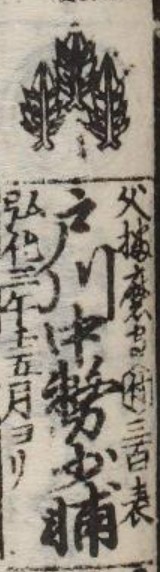 父播磨守 三百表
戸川中務少輔
弘化三午壬五月ヨリ